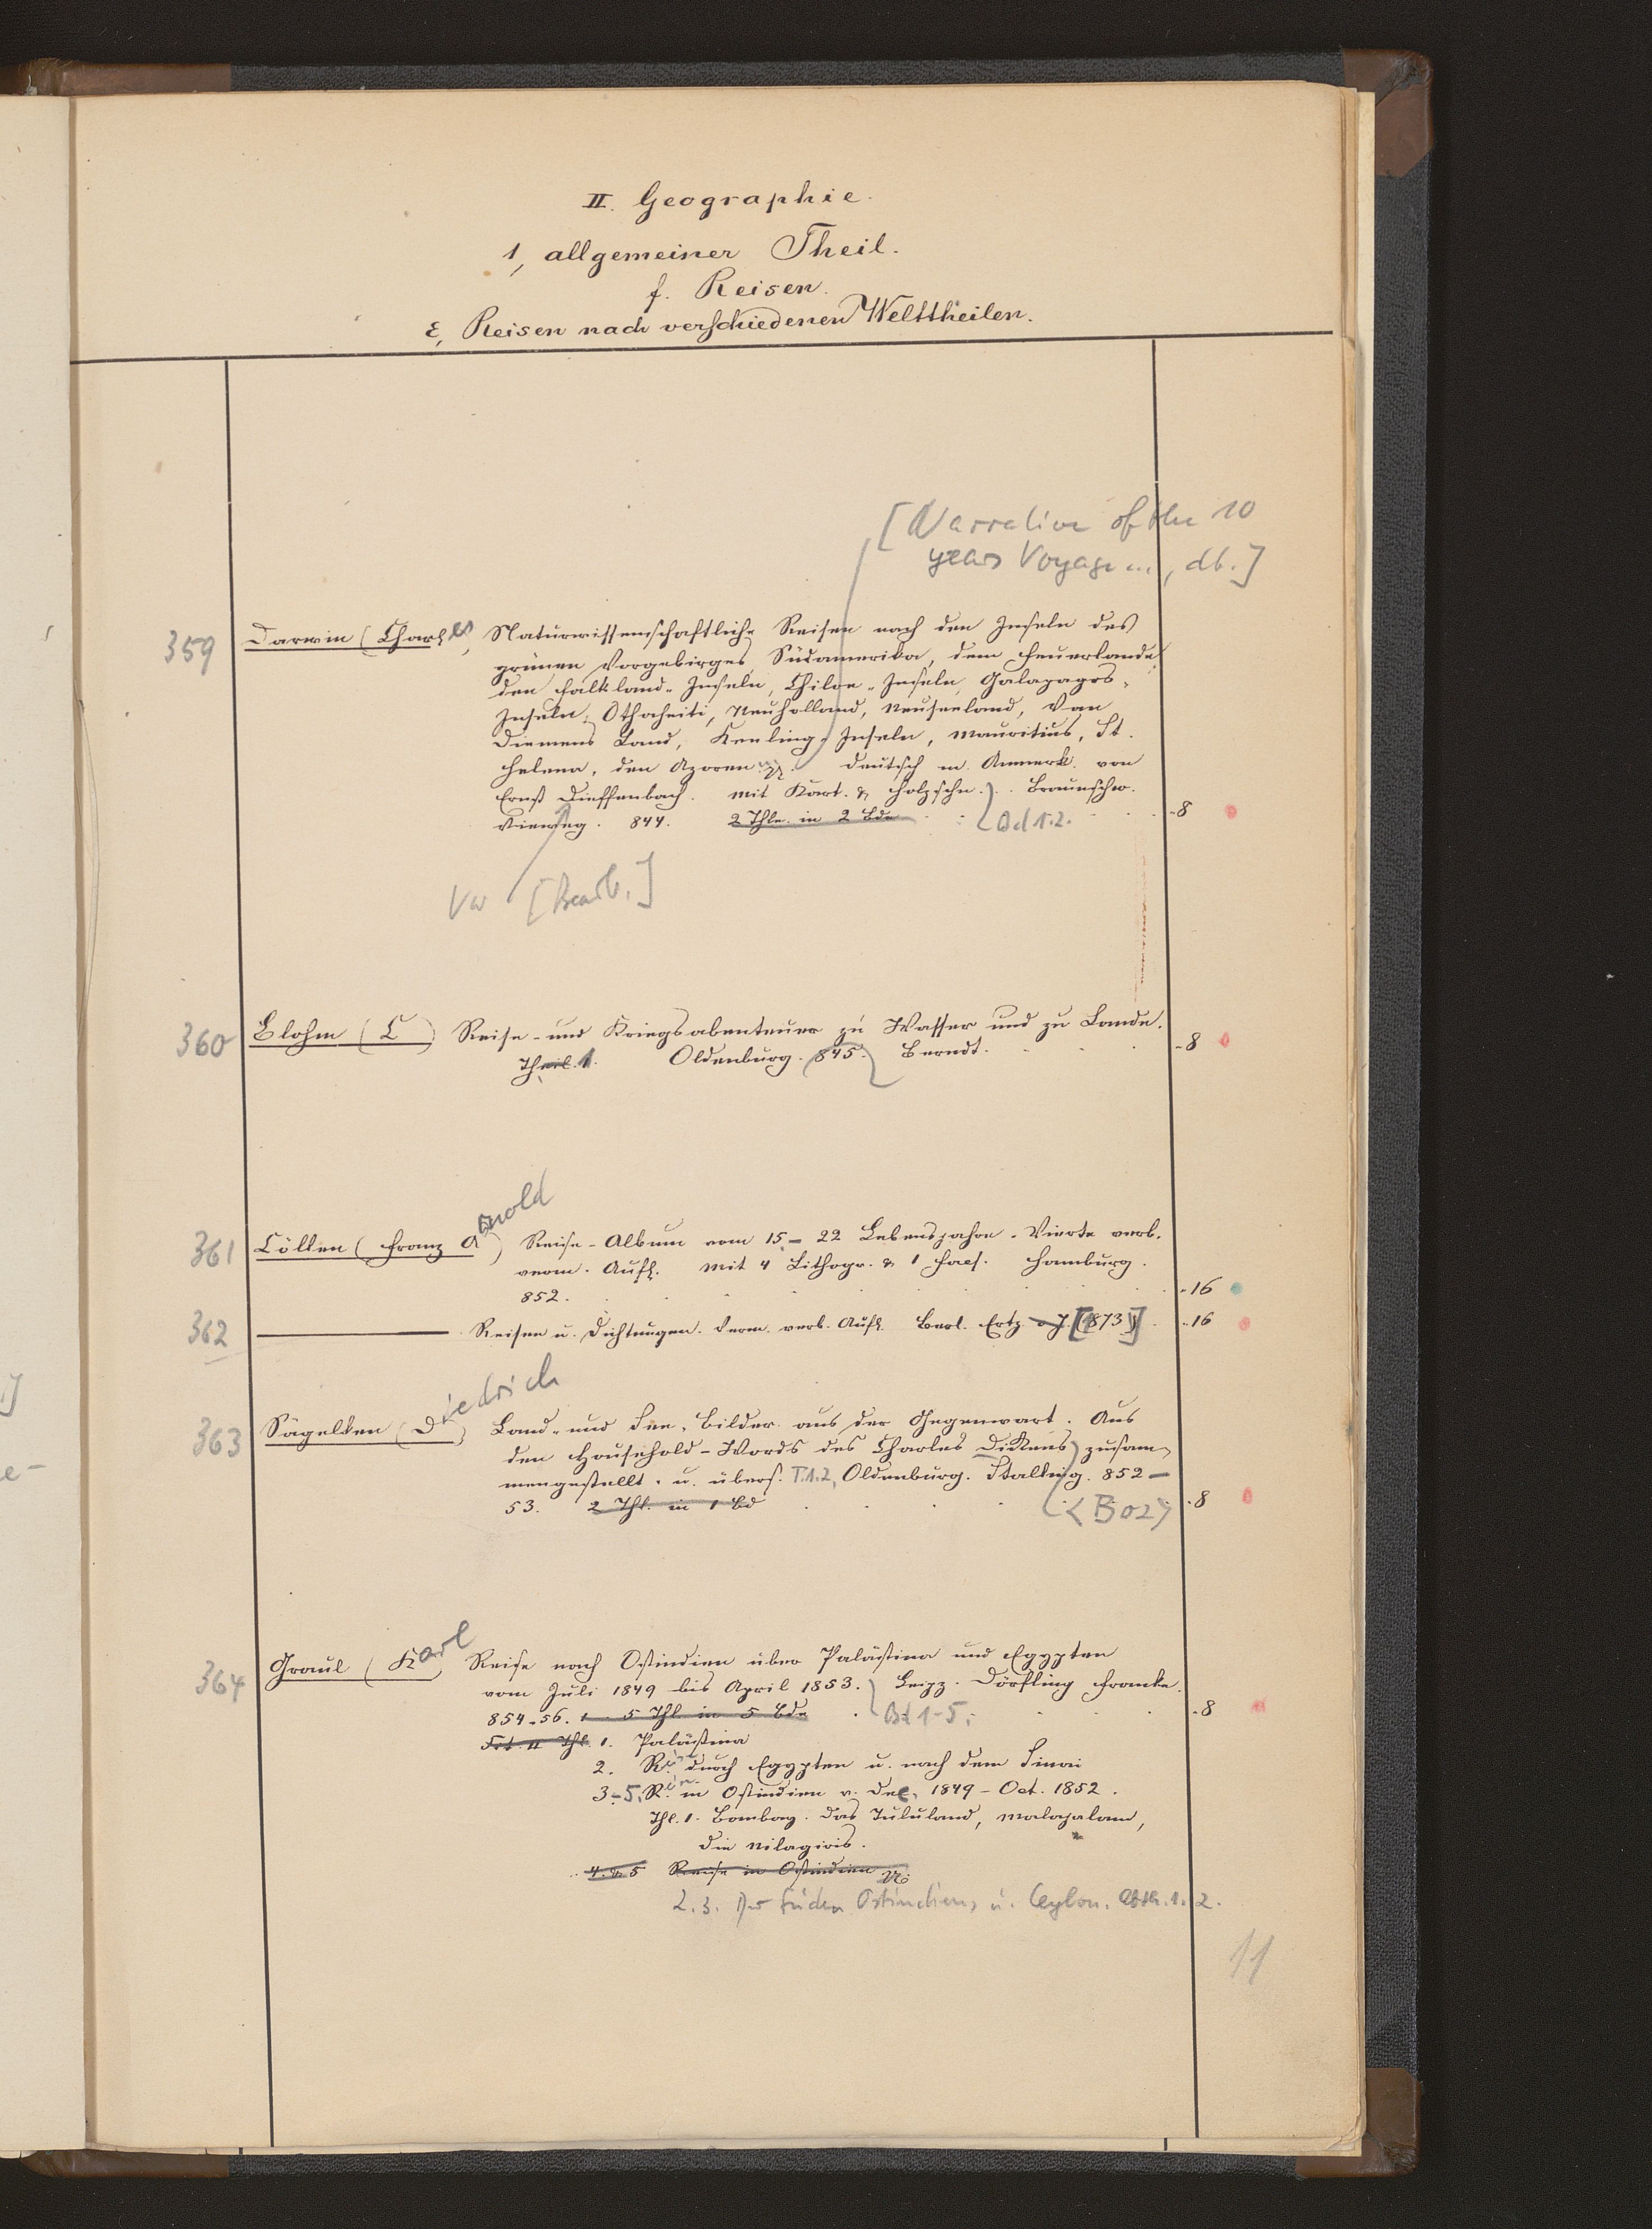 II. Geographie.
1, allgemeiner Theil.
f. Reisen.
ε, Reisen nach verschiedenen Welttheilen.
[Narrative of the 10
years Voyage ..., dt.]
359 Darwin (Charles, Naturwissenschaftliche Reisen nach den Inseln des
grünen Vorgebirges, Südamerika, dem Feuerlande,
den Falkland-Inseln, Chiloe-Inseln, Galapagos-
Inseln, Othaheiti, Neuholland, Neuseeland, Van
Diemens Land, Keeling-Inseln, Mauritius, St.
Helena, den Azoren Deutsch m. Anmerk. von
Ernst Dieffenbach. Mit Kart. & Holzschn. Braunschw.
Vieweg. 844. 2 Thle. in 2 Bde Bd 1.2. 8
Vw [Bearb.]
360 Blohm (L) Reise- und Kriegsabenteuer zu Wasser und zu Lande.
Theil. 1. Oldenburg. 845. Berndt. 8
361 Cöllen (Franz Arnold) Reise-Album vom 15-22 Lebensjahre. Vierte verb.
verm. Aufl. Mit 4 Lithogr. & 1 Facs. Hamburg.
852. 16
362 Reisen u. Dichtungen. Verm. verb. Aufl. Berl. Ertz. o J. [1873] 16
363 Sägelken (Diedrich) Land- und See-Bilder aus der Gegenwart. Aus
den Household-Words des Charles Dickens zusam-
mengestellt u. übers. T.1.2, Oldenburg. Stalling. 852-
53. 2 Thl. in 1 Bd <Boz> 8
364 Graul (Karl Reise nach Ostindien über Palästina und Egypten
vom Juli 1849 bis April 1853. Leipz. Dörffling Franke.
854-56. 1-5 Thl in 5 Bde Bd 1-5. 8
Thl. 1. Palästina
2. R. durch Egypten u. nach dem Sinai
3-5. R. in Ostindien v. Dec. 1849 - Oct. 1852.
Thl. 1. Bombay. Das Tululand, Malajalam,
die Nilagiris.
4. & 5 Reise in Ostindien
2.3. Der Süden Ostindiens u. Ceylon. Abth. 1. 2.
11